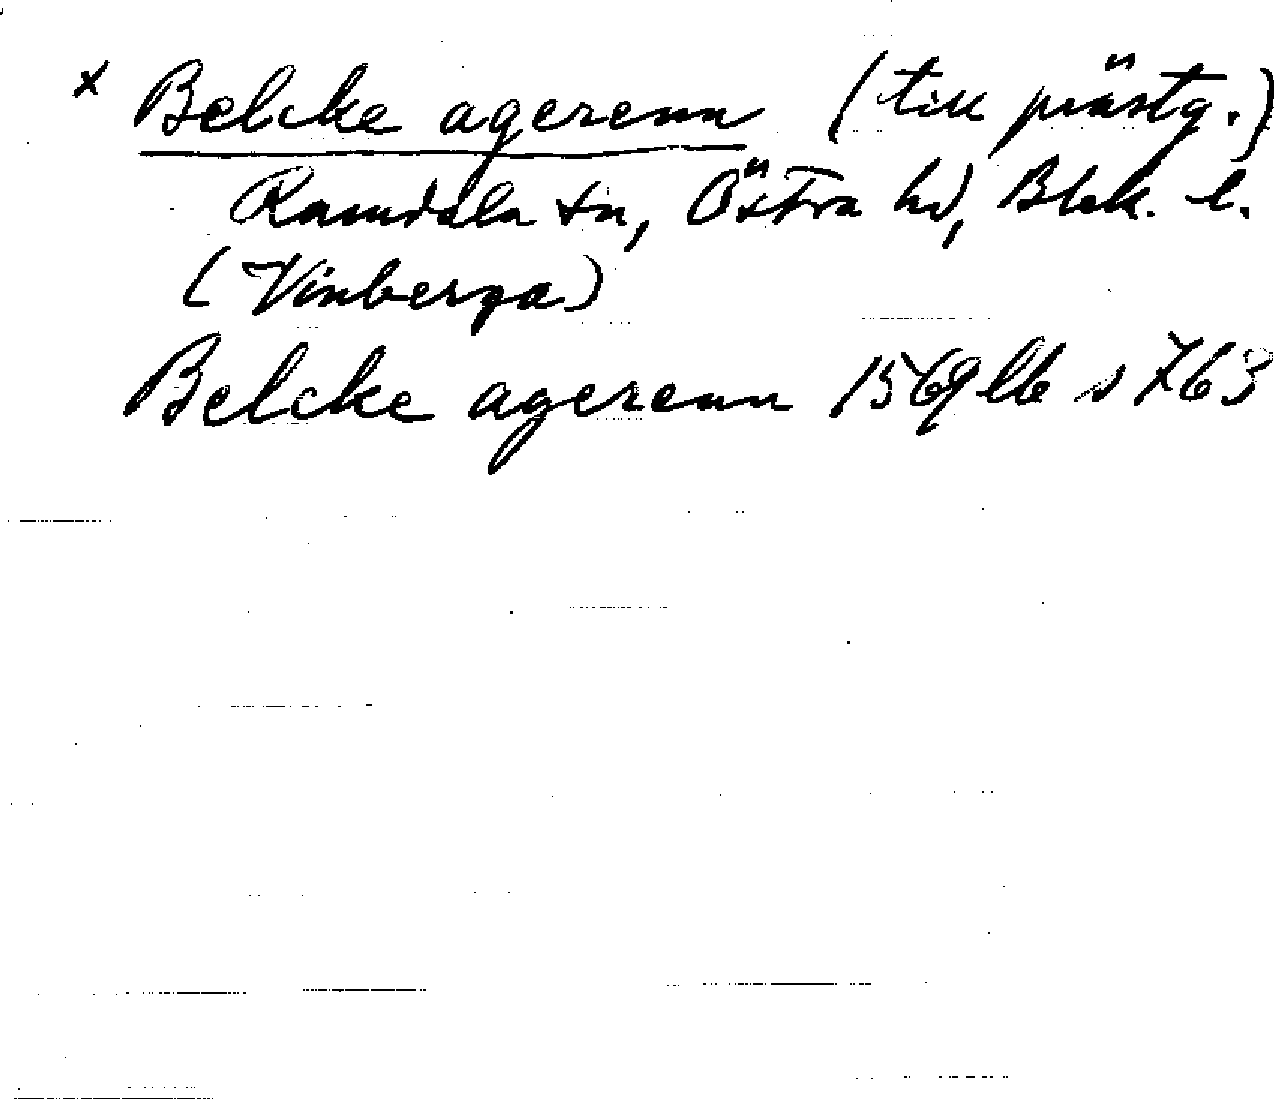 x Belcke agerenn (till prästg.)
Ramdala sn, Östra hd, Blek. l.
(Vinberga)
Belcke agerenn 1569 lb s 763